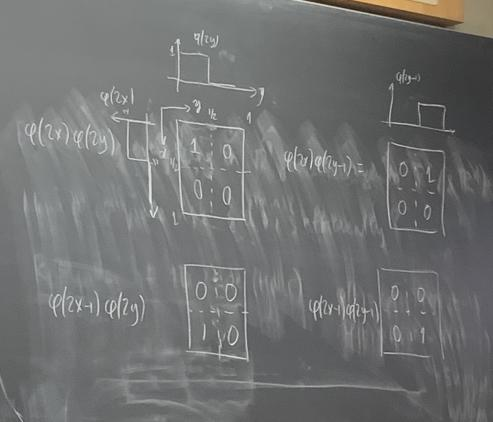 φ(2y)
1
y
φ(2x)
y
1/2
1
φ(2y-1)
φ(2x) φ(2y)
x
1/2
1 0
0 0
1
φ(2x) φ(2y-1) =
0 1
0 0
φ(2x-1) φ(2y)
0 0
1 0
φ(2x-1) φ(2y-1)
0 0
0 1